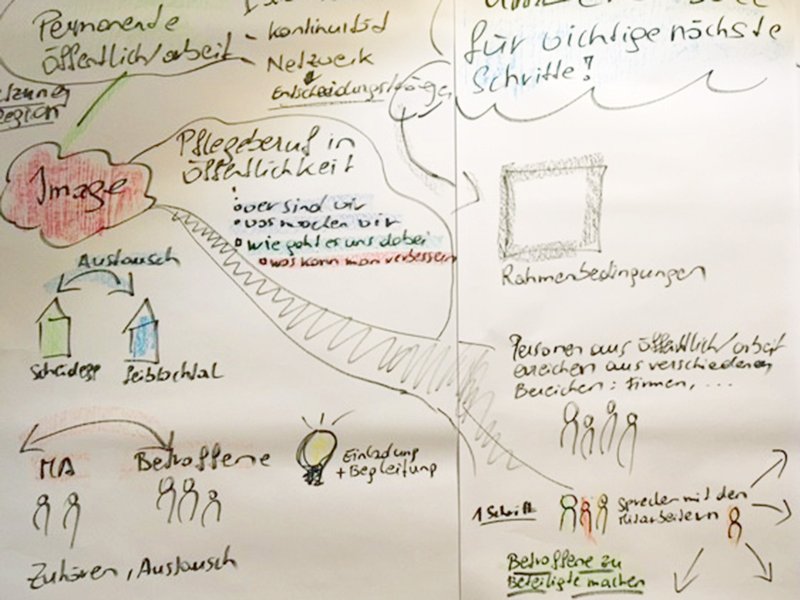 Permanente
Öffentlich/arbeit
- Kontinuität
- Netzwerk
Entscheidungsträger
Region
für wichtige nächste
Schritte?
Image
Pflegeberuf in
Öffentlichkeit
wer sind wir
was machen wir
wie geht es uns dabei
was kann man verbessern
Rahmenbedingungen
Austausch
Scheidegg
Leiblachtal
Personen aus Öffentlich/arbeit
erreichen aus verschiedenen
Bereichen: Firmen, ...
MA
Betroffene
Einladung
+ Begleitung
Zuhören, Austausch
1 Schritt
Sprechen mit den
Mitarbeitern
Betroffene zu
Beteiligte machen